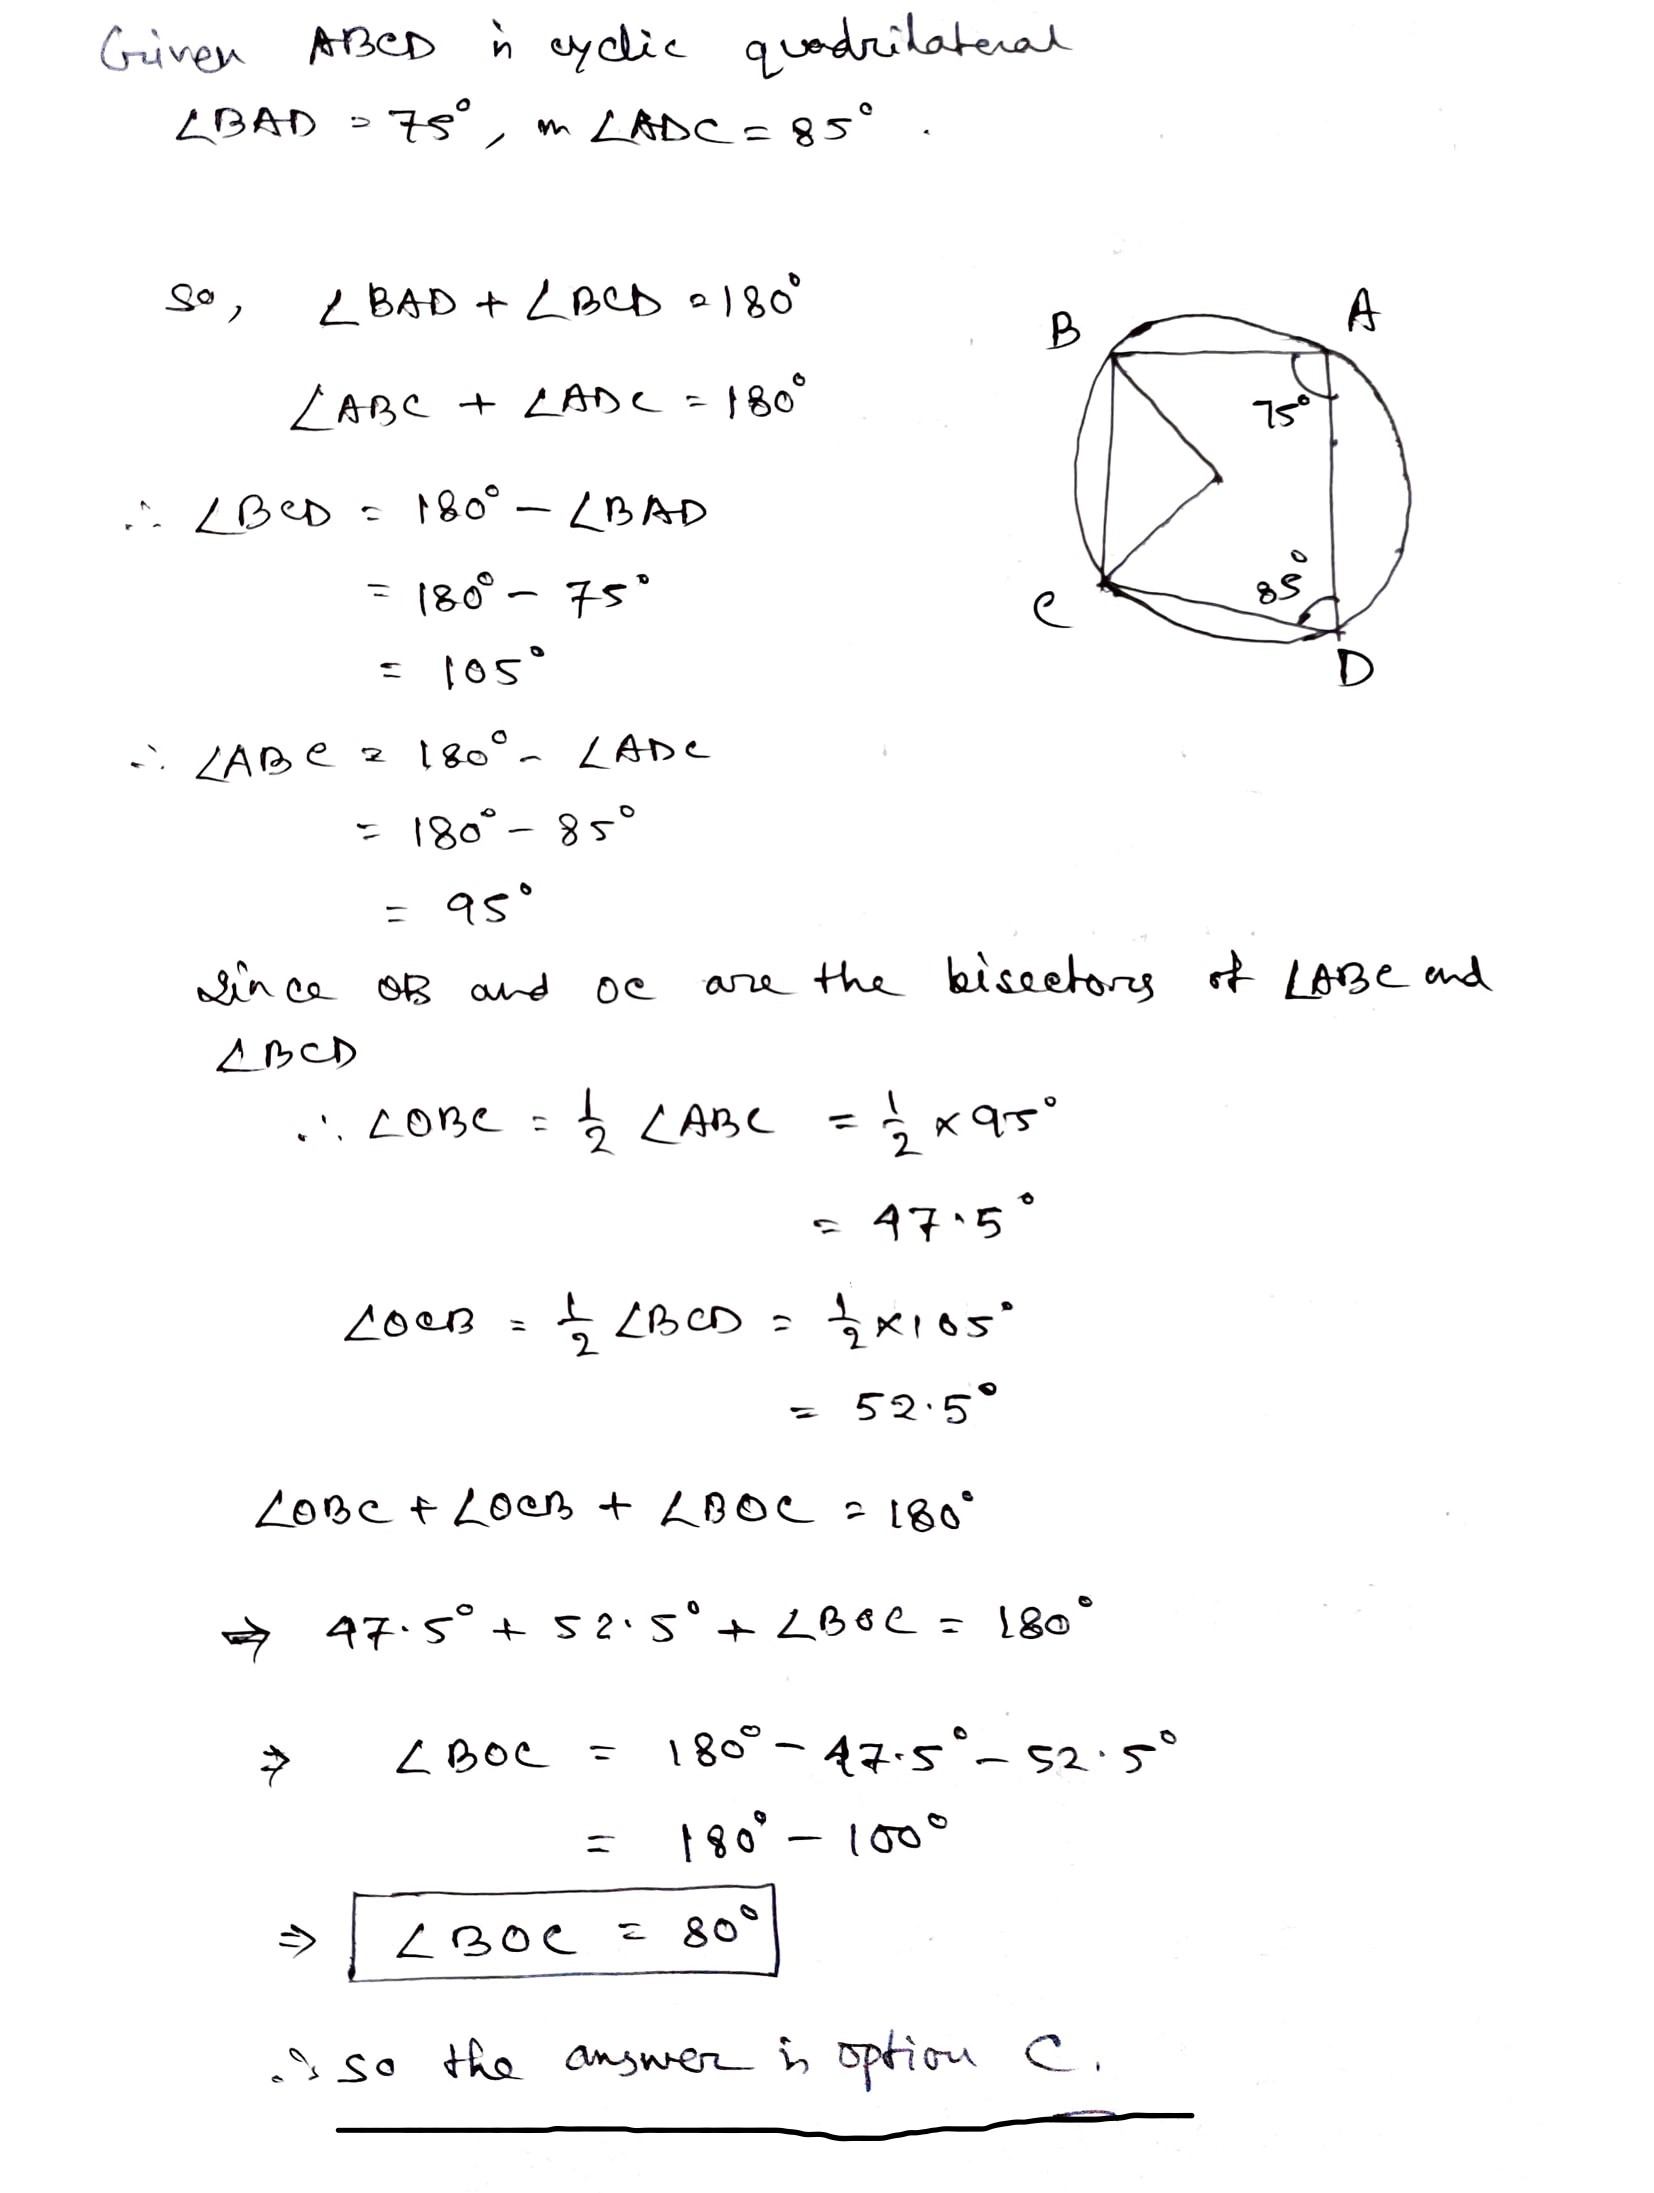 Given ABCD is cyclic quadrilateral
∠BAD = 75°, m ∠ADC = 85°.
So, ∠BAD + ∠BCD = 180°
∠ABC + ∠ADC = 180°
∴ ∠BCD = 180° - ∠BAD
= 180° - 75°
= 105°
∴ ∠ABC = 180° - ∠ADC
= 180° - 85°
= 95°
B
A
75°
85°
C
D
Since OB and OC are the bisectors of ∠ABC and
∠BCD
∴ ∠OBC = 1/2 ∠ABC = 1/2 × 95°
= 47.5°
∠OCB = 1/2 ∠BCD = 1/2 × 105°
= 52.5°
∠OBC + ∠OCB + ∠BOC = 180°
⇒ 47.5° + 52.5° + ∠BOC = 180°
⇒ ∠BOC = 180° - 47.5° - 52.5°
= 180° - 100°
⇒ ∠BOC = 80°
∴ so the answer is option C.